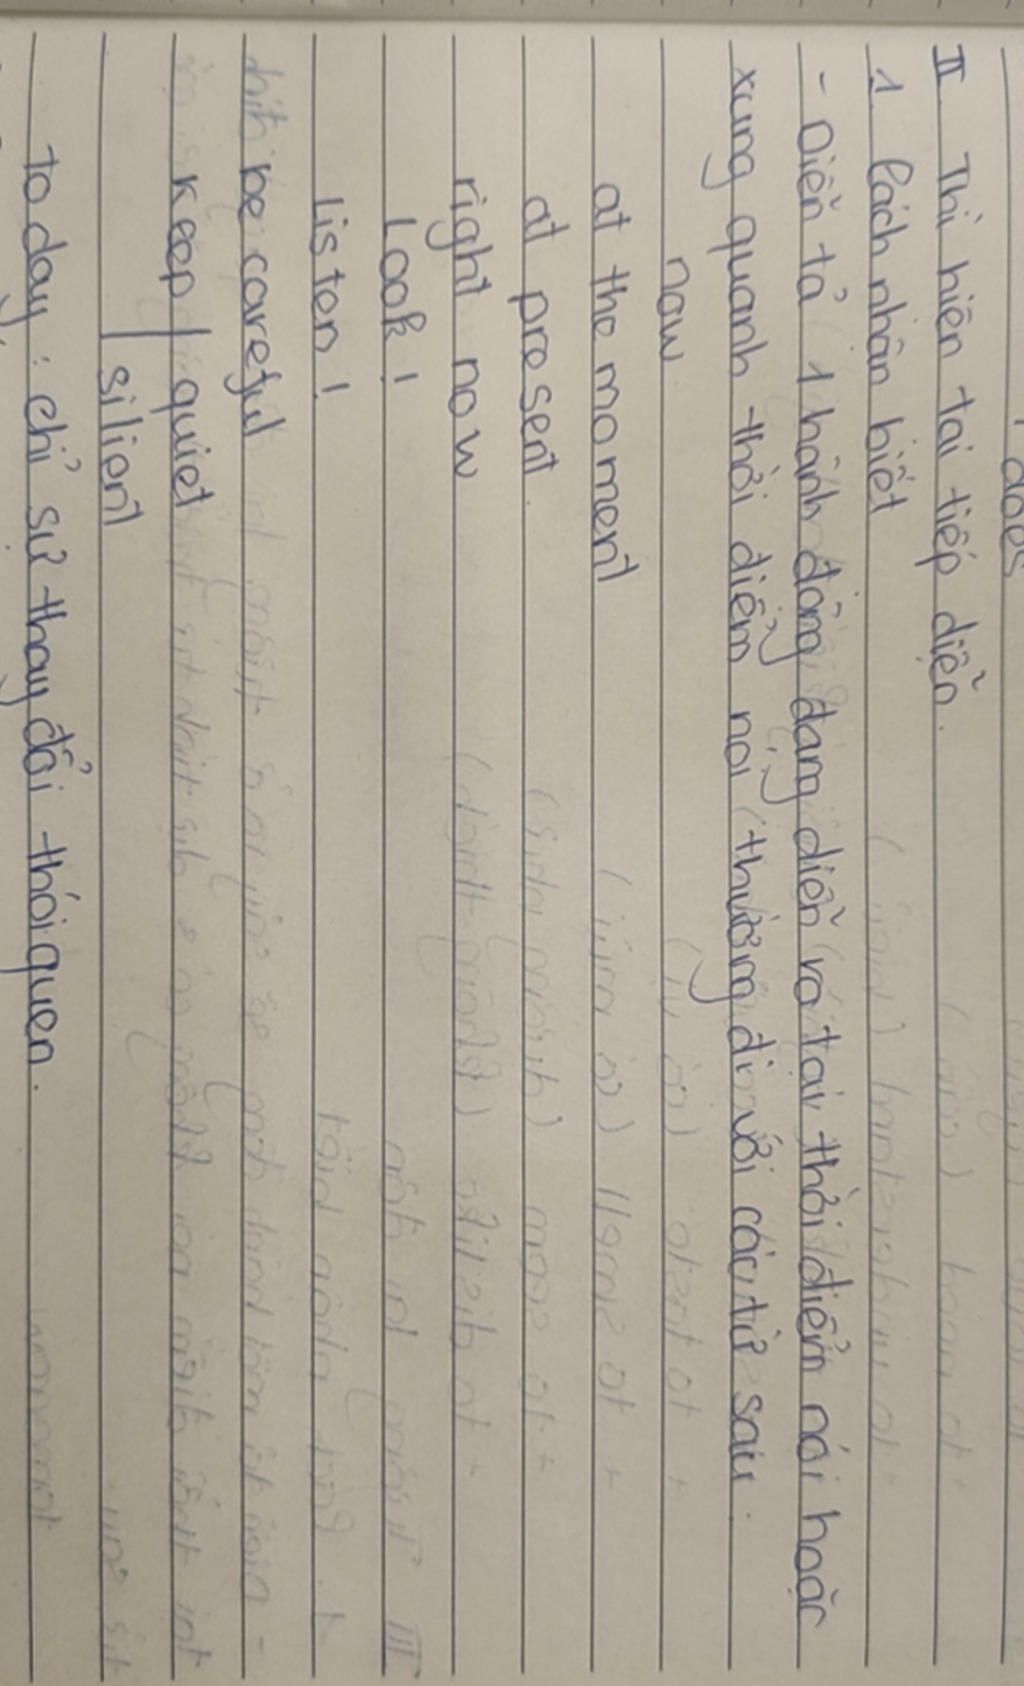 does
II Thì hiện tại tiếp diễn.
1 Cách nhận biết
- Diễn tả 1 hành động đang diễn ra tại thời điểm nói hoặc
xung quanh thời điểm nói, thường đi với các từ sau.
now
at the moment
at present.
right now
Look!
Listen!
be careful
Keep | quiet
silient
today: chỉ sự thay đổi thói quen.